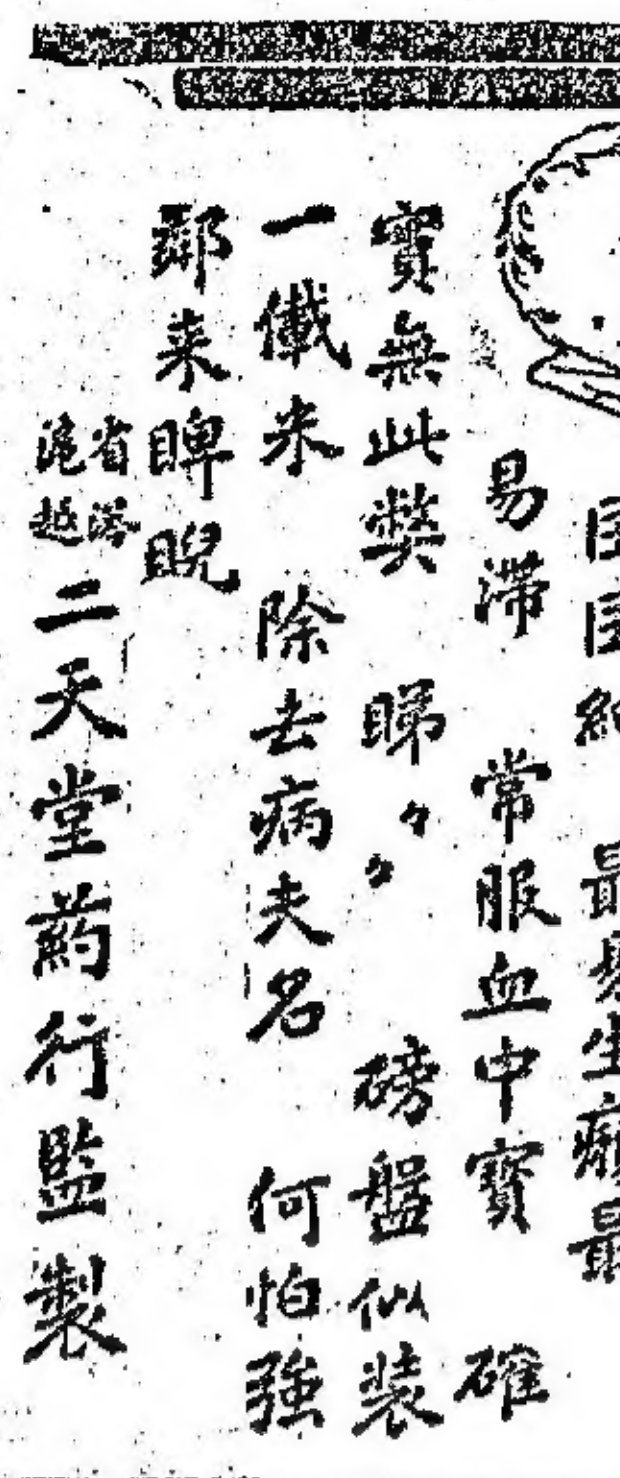 最易生癩最
易滯 常服血中寶 確
實無此弊 睇々々 磅盤似裝
一儎米 除去病夫名 何怕強
鄰来睥睨
省港
滬越
二天堂葯行監製